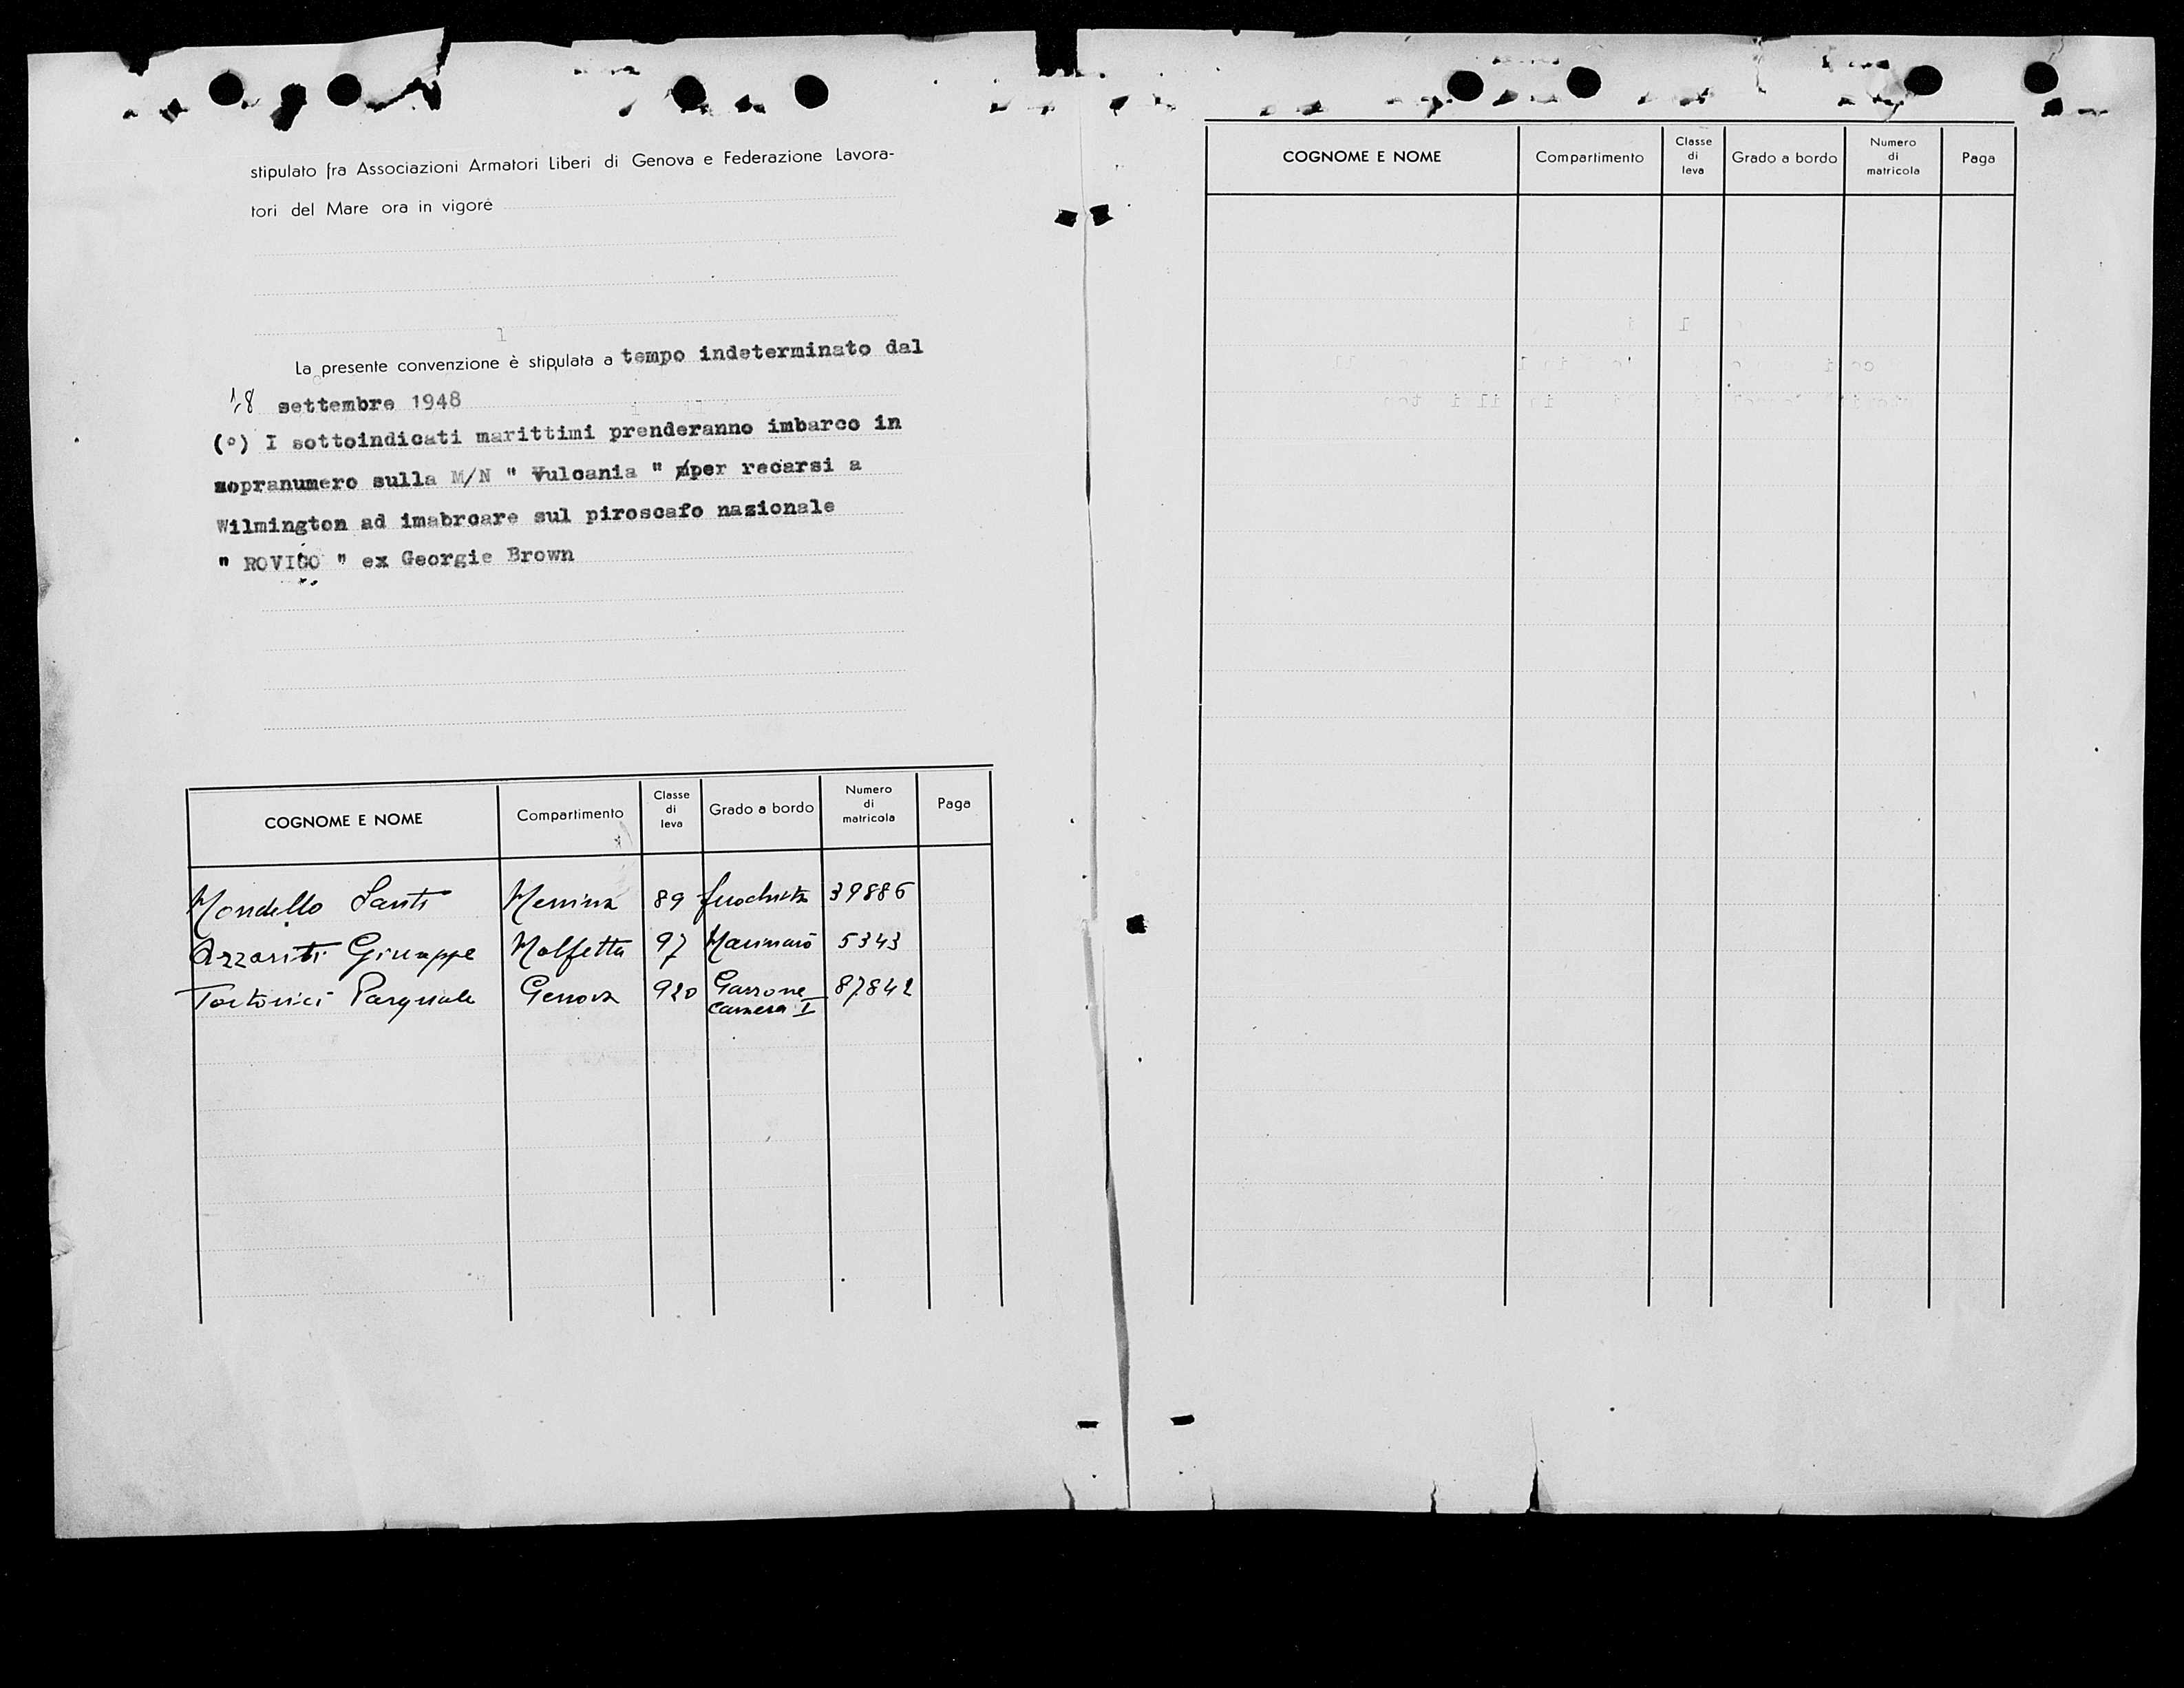 stipulato fra Associazioni Armatori Liberi di Genova e Federazione Lavora-
tori del Mare ora in vigore
La presente convenzione è stipulata a tempo indeterminato dal
18 settembre 1948
(°) I sottoindicati marittimi prenderanno imbarco in
sopranumero sulla M/N " Vulcania " per recarsi a
Wilmington ad imabrcare sul piroscafo nazionale
" ROVIGO " ex Georgie Brown
COGNOME E NOME Compartimento Classe di leva Grado a bordo Numero di matricola Paga
Mondello Santi Messina 89 fuochista 39886
Azzariti Giuseppe Molfetta 97 Marinaio 5343
Tortorici Pasquale Genova 920 Garzone camera I 87842
COGNOME E NOME Compartimento Classe di leva Grado a bordo Numero di matricola Paga